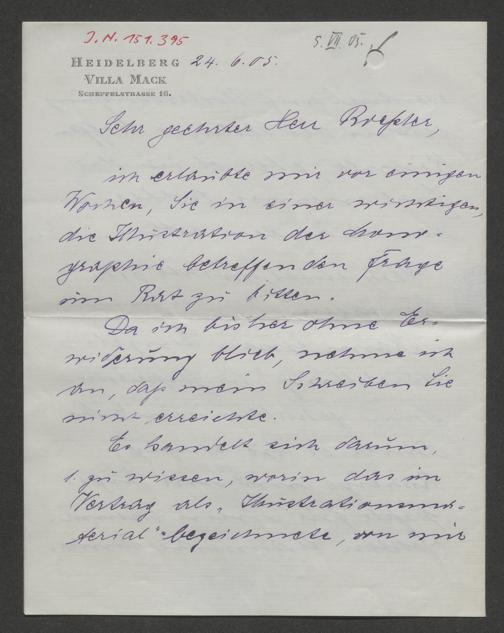 J. N. 151.395
5. VII. 05.
HEIDELBERG
VILLA MACK
SCHEFFELSTRASSE 16.
24. 6. 05.
Sehr geehrter Herr Roessler,
ich erlaubte mir vor einigen
Wochen, Sie in einer wichtigen,
die Illustration der Mono-
graphie betreffenden Frage
um Rat zu bitten.
Da ich bisher ohne Er-
widerung blieb, nehme ich
an, daß mein Schreiben Sie
nicht erreichte.
Es handelt sich darum,
1. zu wissen, worin das im
Vertrag als "Illustrationsma-
terial" bezeichnete, von mir